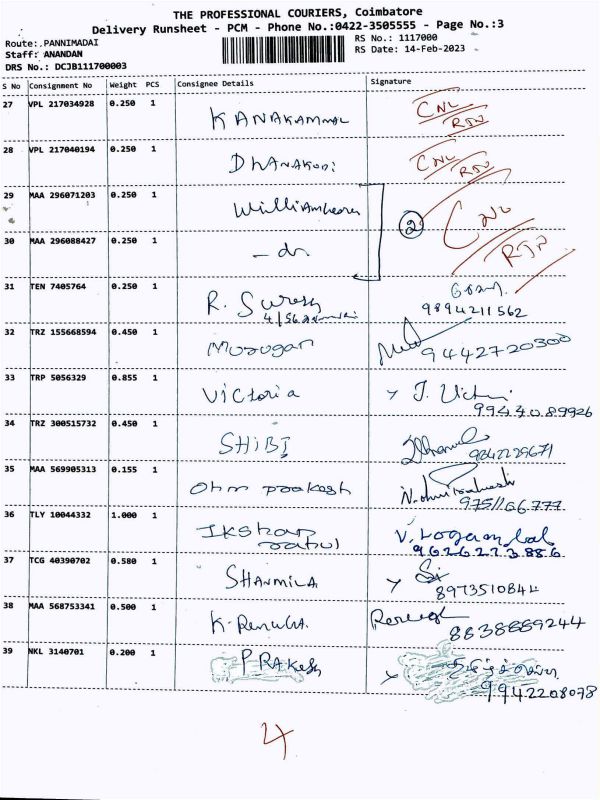 THE PROFESSIONAL COURIERS, Coimbatore
Delivery Runsheet - PCM - Phone No.:0422-3505555 - Page No.:3
Route: PANNIMADAI
RS No.: 1117000
Staff: ANANDAN
RS Date: 14-Feb-2023
DRS No.: DCJB111700003
S No Consignment No Weight PCS Consignee Details Signature
27 VPL 217034928 0.250 1 KANAKAMMAL CNL RTN
28 VPL 217040194 0.250 1 DHANAKODI CNL RTN
29 MAA 296071203 0.250 1 2 CNL
30 MAA 296088427 0.250 1 - do. RTN
31 TEN 7405764 0.250 1 R. Suresh
4/56 9894211562
32 TRZ 155668594 0.450 1 Murugan 9442720300
33 TRP 5056329 0.855 1 Victoria J. 9944089926
34 TRZ 300515732 0.450 1 SHIBI 9842229671
35 MAA 569905313 0.155 1 Ohm prakash 9751166777
36 TLY 10044332 1.000 1 Ikshan V. Logambal
rahul 9626223886
37 TCG 40390702 0.580 1 SHANMILA 8973510844
38 MAA 568753341 0.500 1 K. Renuga 8838889244
39 NKL 3140701 0.200 1 PRAKash 9942208078
4